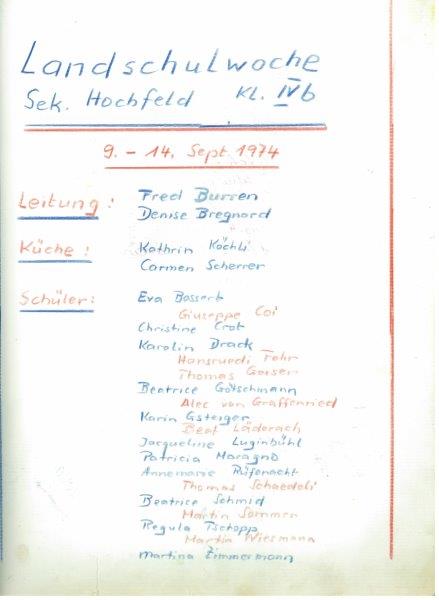 Landschulwoche
Sek. Hochfeld Kl. IVb
9. - 14. Sept 1974
Leitung: Fred Burren
Denise Bregnard
Küche: Kathrin Köchli
Carmen Scherrer
Schüler: Eva Bossert
Giuseppe Coi
Christine Crot
Karolin Drack
Hansruedi Fehr
Thomas Geiser
Beatrice Götschmann
Alec von Graffenried
Karin Gsteiger
Beat Läderach
Jacqueline Luginbühl
Patricia Maragno
Annemarie Rüfenacht
Thomas Schaedeli
Beatrice Schmid
Martin Sommer
Regula Tschopp
Martin Wiesmann
Martina Zimmermann